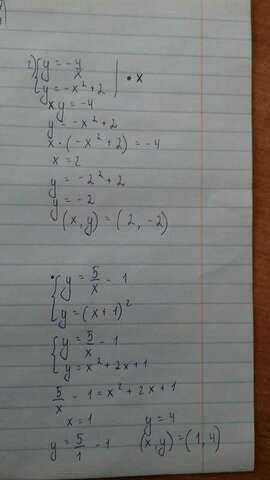 2) { y = -4/x | • x
y = -x² + 2
xy = -4
y = -x² + 2
x • (-x² + 2) = -4
x = 2
y = -2² + 2
y = -2
(x, y) = (2, -2)
• { y = 5/x - 1
y = (x + 1)²
{ y = 5/x - 1
y = x² + 2x + 1
5/x - 1 = x² + 2x + 1
x = 1 y = 4
y = 5/1 - 1 (x, y) = (1, 4)